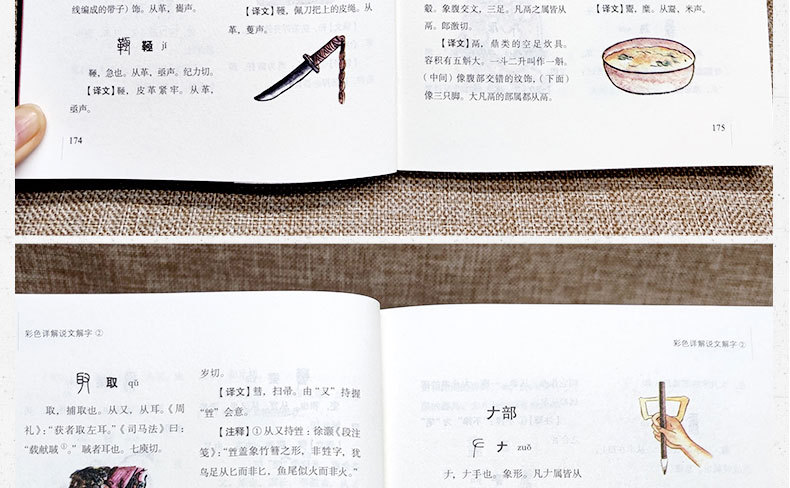 线编成的带子）饰。从革，䜌声。
jí
，急也。从革，亟声。纪力切。
【译文】，皮革紧牢。从革，
亟声。
174
【译文】，佩刀把上的皮绳。从
革，蔓声。
毂，象腹交文，三足。凡鬲之属皆从
鬲。郎激切。
【译文】鬲，鼎类的空足炊具。
容积有五斛大。一斗二升叫作一斛。
（中间）像腹部交错的纹饰，（下面）
像三只脚。大凡鬲的部属都从鬲。
，米声。
175
彩色详解说文解字②
取 qǔ
取，捕取也。从又，从耳。《周
礼》：“获者取左耳。”《司马法》曰：
“载献聝①。”聝者耳也。七庾切。
岁切。
【译文】彗，扫帚。由“又”持握
“甡”会意。
【注释】①从又持甡：徐灏《段注
笺》：“甡盖象竹篲之形，非甡字，犹
鸟足从匕而非匕，鱼尾似火而非火。”
彩色详解说文解字②
𠂇部
𠂇 zuǒ
𠂇，𠂇手也。象形。凡𠂇属皆从